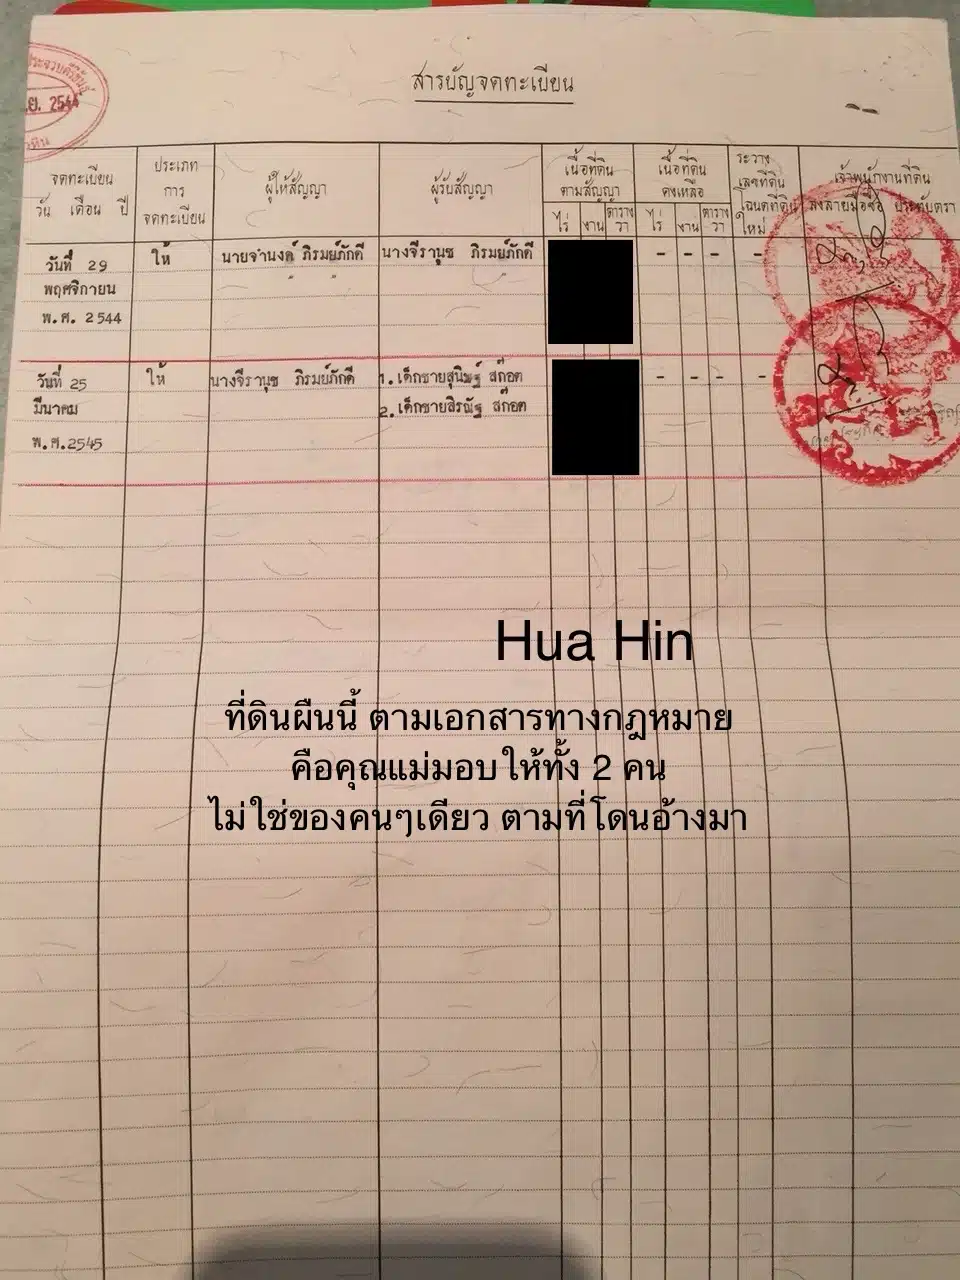 ประจวบคีรีขันธ์
ย. 2544
สารบัญจดทะเบียน
จดทะเบียน
วัน เดือน ปี
ประเภท
การ
จดทะเบียน
ผู้ให้สัญญา
ผู้รับสัญญา
เนื้อที่ดิน
ตามสัญญา
ไร่ งาน ตาราง
วา
เนื้อที่ดิน
คงเหลือ
ไร่ งาน ตาราง
วา
ระวาง
เลขที่ดิน
โฉนดที่ดิน
ใหม่
เจ้าพนักงานที่ดิน
ลงลายมือชื่อ ประทับตรา
วันที่ 29 ให้ นายจำนงค์ ภิรมย์ภักดี นางจีรานุช ภิรมย์ภักดี - - - -
พฤศจิกายน
พ.ศ. 2544
วันที่ 25 ให้ นางจีรานุช ภิรมย์ภักดี 1. เด็กชายสุนิษฐ์ สก๊อต - - - -
มีนาคม 2. เด็กชายสิรณัฐ สก๊อต
พ.ศ.2545
Hua Hin
ที่ดินผืนนี้ ตามเอกสารทางกฎหมาย
คือคุณแม่มอบให้ทั้ง 2 คน
ไม่ใช่ของคนๆเดียว ตามที่โดนอ้างมา